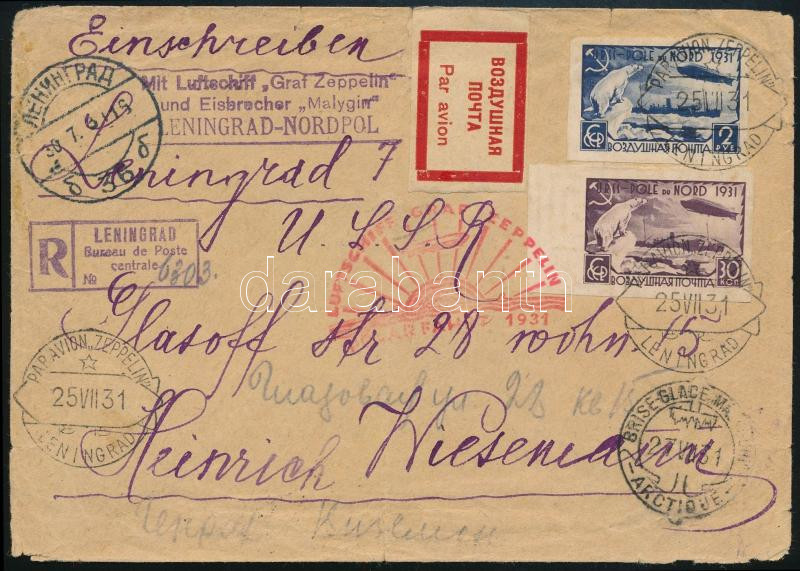 Einschreiben
Mit Luftschiff „Graf Zeppelin“
und Eisbrecher „Malygin“
LENINGRAD-NORDPOL
ЛЕНИНГРАД
30.7.6
ВОЗДУШНАЯ
ПОЧТА
Par avion
POLE DU NORD 1931
2 РУБ.
ВОЗДУШНАЯ ПОЧТА
PAR AVION „ZEPPELIN“
25 VII 31
LENINGRAD
POLE DU NORD 1931
30 КОП.
ВОЗДУШНАЯ ПОЧТА
PAR AVION „ZEPPELIN“
25 VII 31
LENINGRAD
Leningrad 7
U.S.S.R
R
LENINGRAD
Bureau de Poste
centrale
№ 6303.
LUFTSCHIFF GRAF ZEPPELIN
POLARFAHRT 1931
darabanth
Glasoff str 28 wohn. 15
PAR AVION „ZEPPELIN“
25 VII 31
LENINGRAD
Глазовская ул. 28 кв 15
BRISE-GLACE
27 VII 31
ARCTIQUE
Heinrich Wiesemann